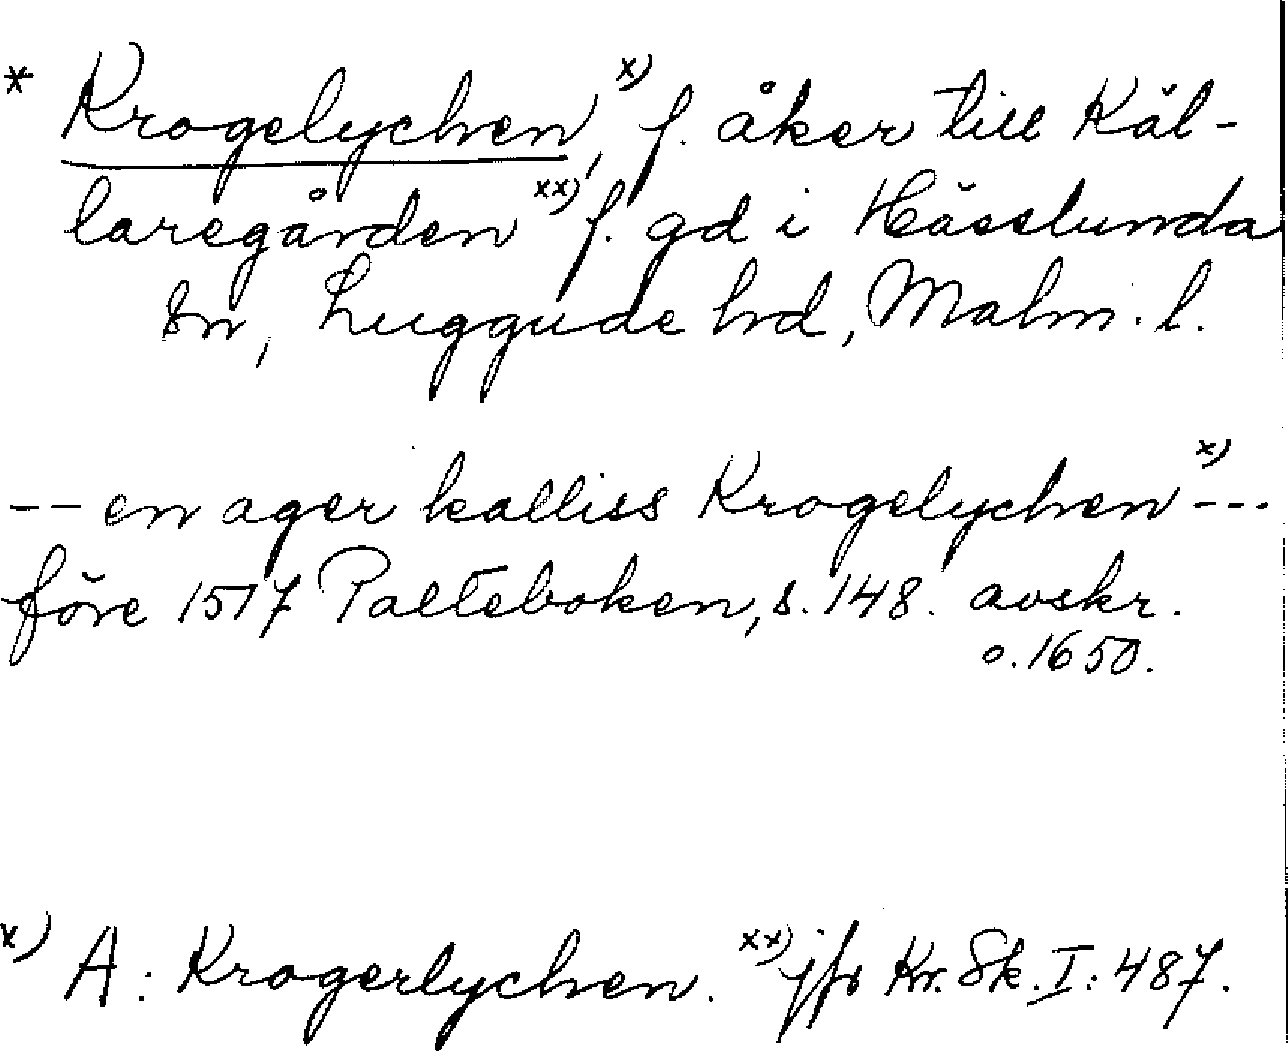 * Krogelychen, x) f. åker till Käl-
laregården xx), f. gd i Hässlunda
sn, Luggude hd, Malm. l.
-- en ager kalliss Krogelychen x) ---
före 1517 Palteboken, s. 148. avskr.
o. 1650.
x) A: Krogerlychen. xx) jfr Kr. Sk. I: 487.